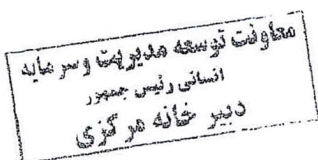 معاونت توسعه مدیریت و سرمایه
انسانی رئیس جمهور
دبیر خانه مرکزی